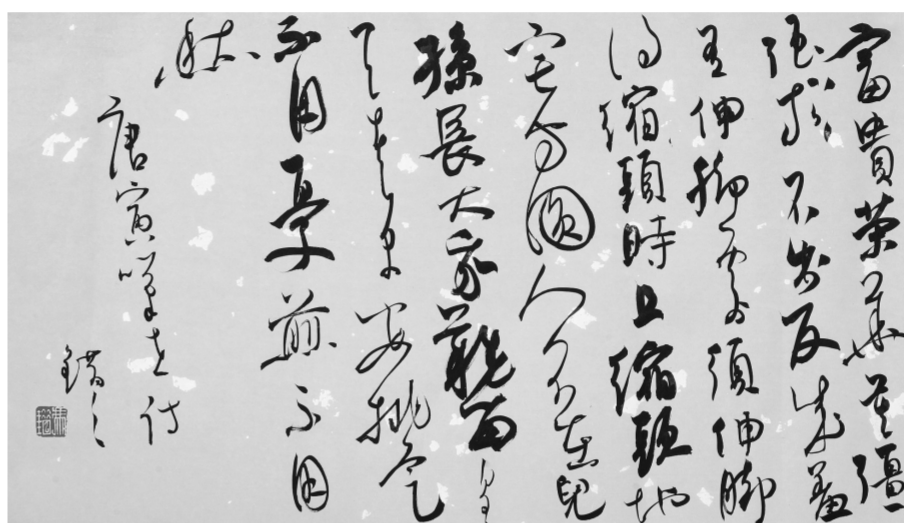 富貴荣華莫彊
强求不出反成羞
有伸脚處須伸脚
得縮頭時且縮頭地
宅方圓人不在兒
孫長大我難留皇
天老早安排定
不用憂煎不用
愁
唐寅 付